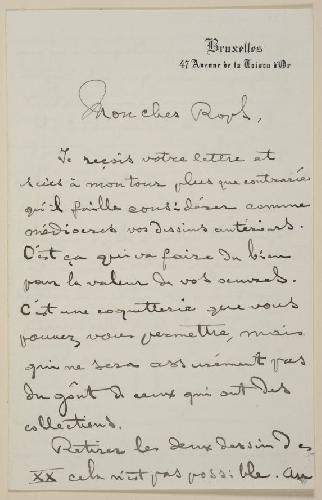 Bruxelles
47 Avenue de la Toison d'Or
Mon cher Rops,
Je reçois votre lettre et
suis à mon tour plus que contrarié
qu'il faille considérer comme
médiocres vos dessins antérieurs.
C'est ça qui va faire du bien
pour la valeur de vos œuvres.
C'est une coquetterie que vous
pouvez vous permettre, mais
qui ne sera assurément pas
du goût de ceux qui ont des
collections.
Retirer les deux dessin des
XX cela n'est pas possible. au